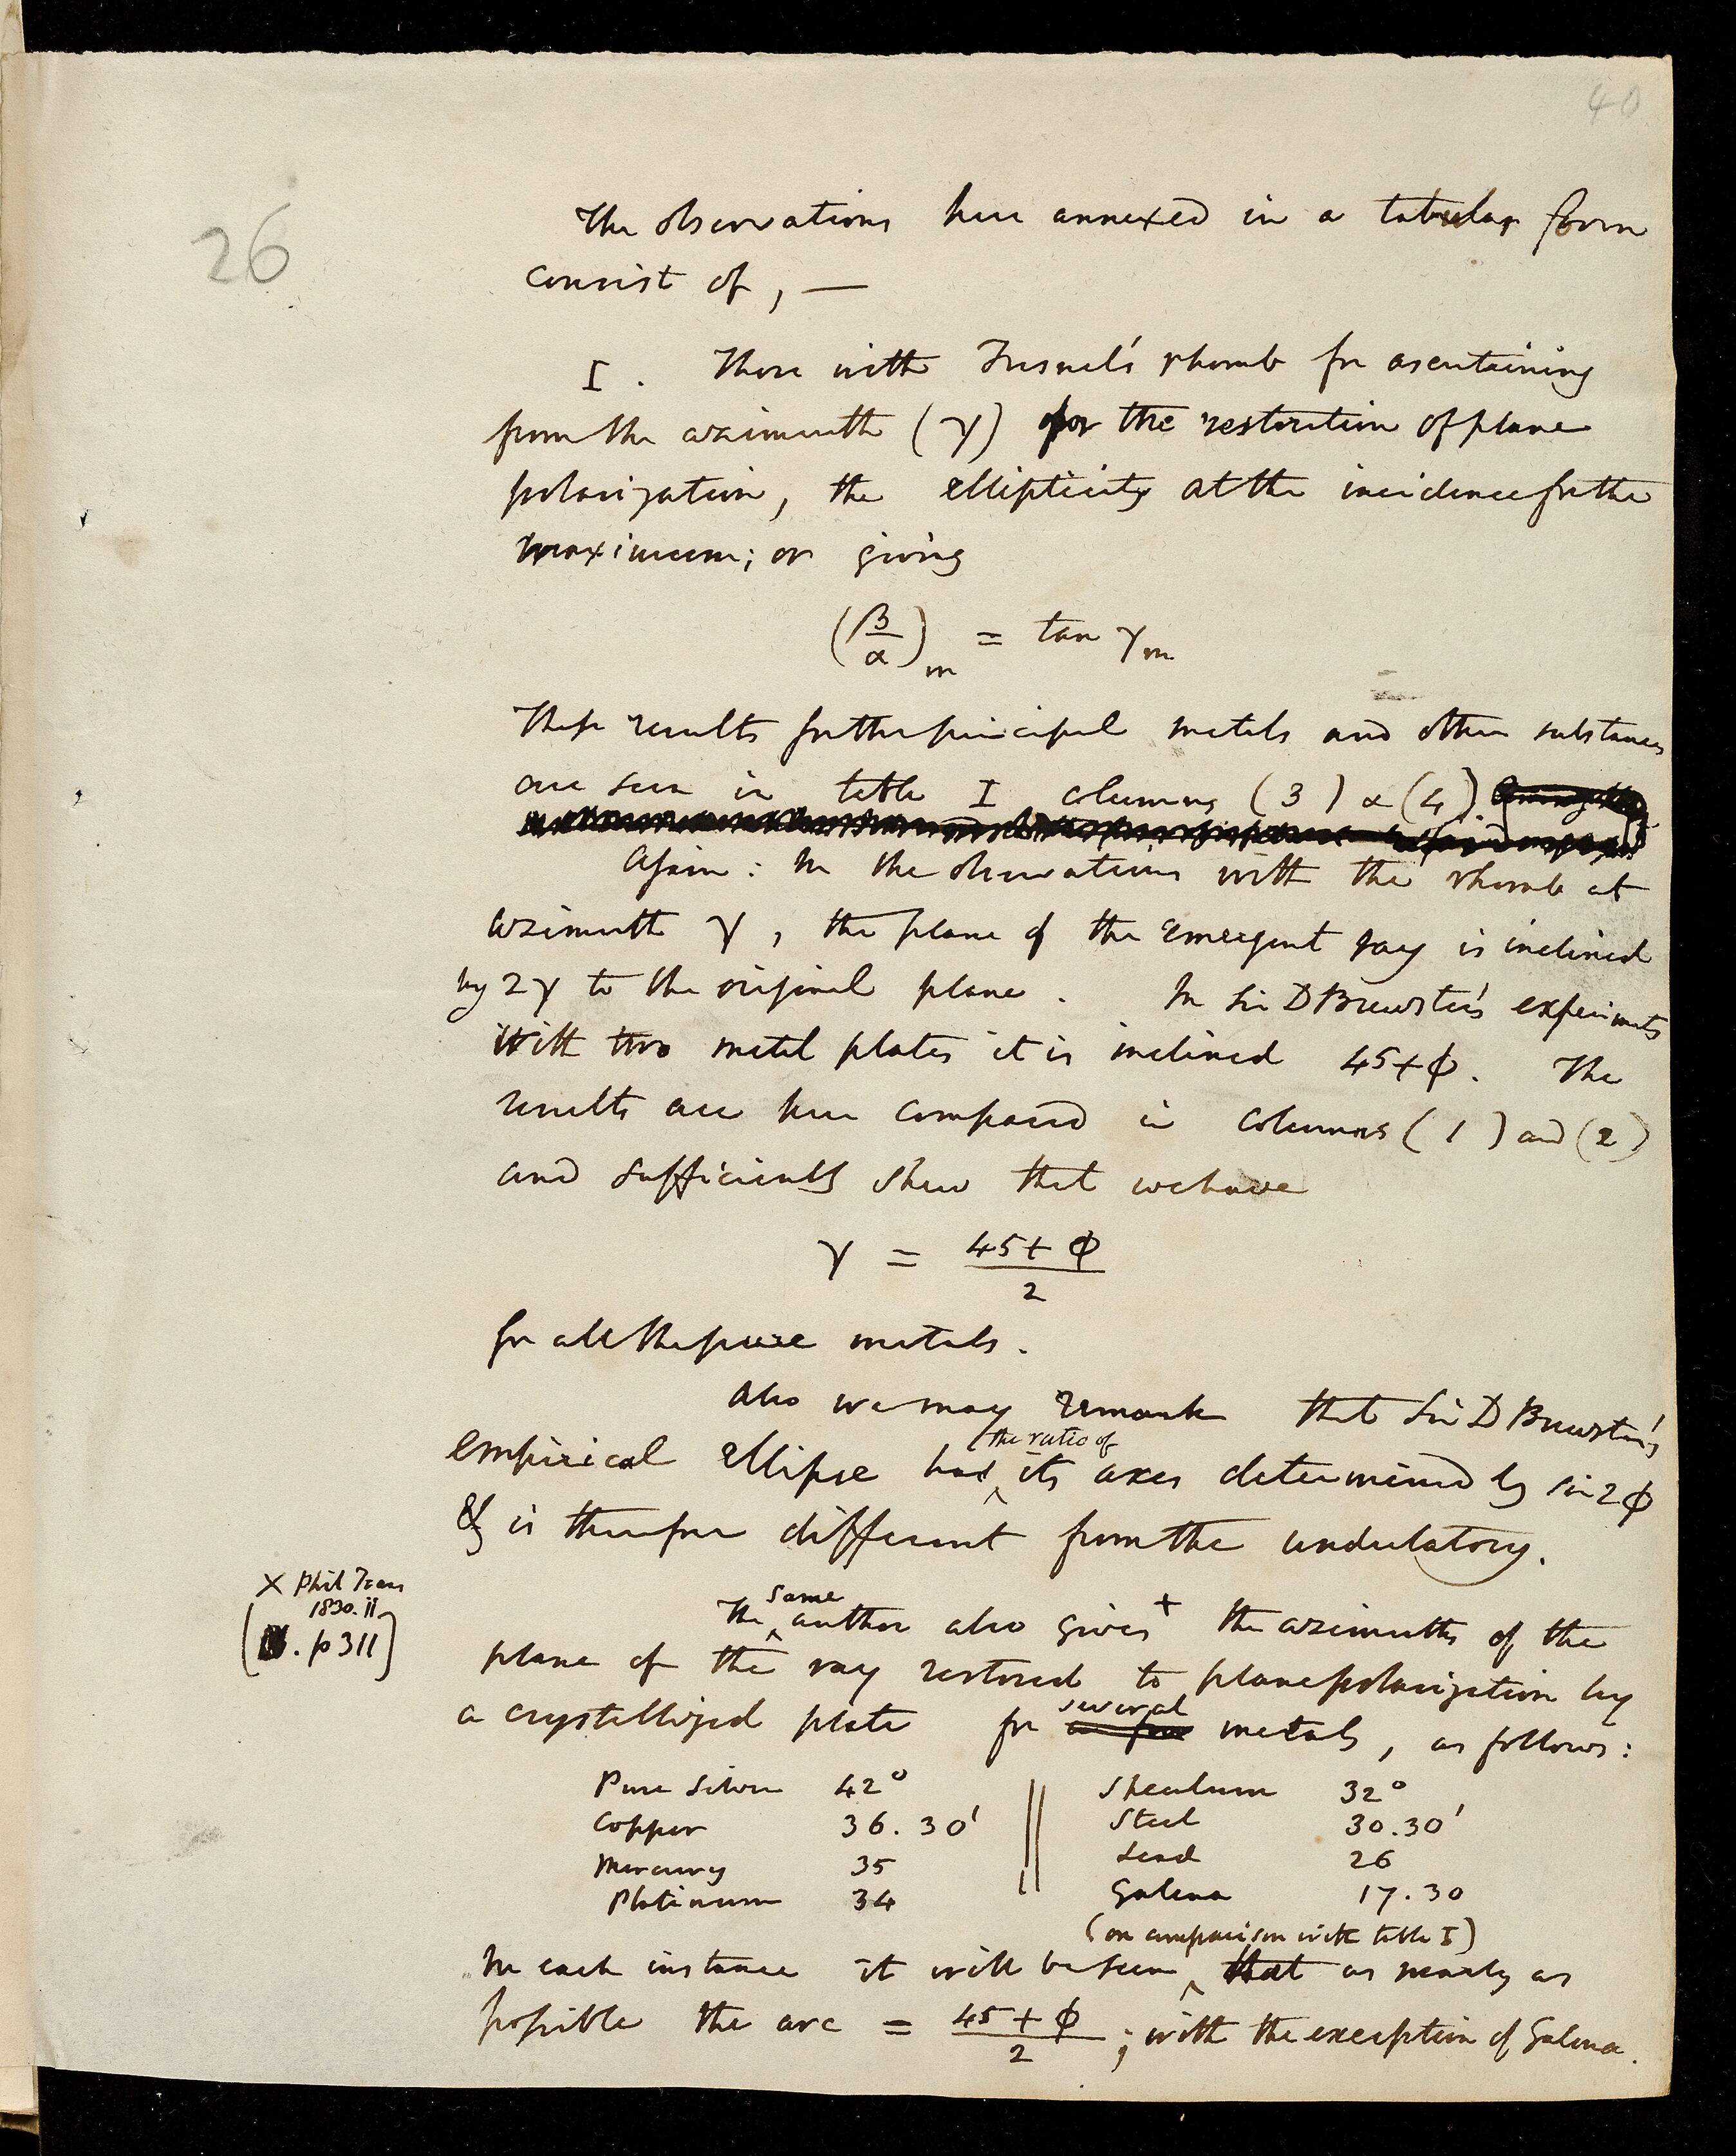 40
26
The observations here annexed in a tabular form
consist of, —
I. Those with Fresnel's rhomb for ascertaining
from the azimuth (γ) for the restoration of plane
polarization, the ellipticity at the incidence for the
maximum; or giving
(β/α)m = tan γm
These results for the principal metals and other substances
are seen in table I columns (3) & (4).
Again: In the observations with the rhomb at
azimuth γ, the plane of the emergent ray is inclined
by 2γ to the original plane. In Sir D Brewster's experiments
with two metal plates it is inclined 45+φ. The
results are here compared in columns (1) and (2)
and sufficiently shew that we have
γ = (45+φ)/2
for all the pure metals.
Also we may remark that Sir D Brewster's
empirical ellipse has the ratio of its axes determined by sin 2φ
& is therefore different from the undulatory.
× Phil Trans
1830. ii
. p 311
The same author also gives + the azimuths of the
plane of the ray restored to plane polarization by
a crystallized plate for several metals, as follows:
Pure Silver 42° Speculum 32°
Copper 36.30' Steel 30.30'
Mercury 35 Lead 26
Platinum 34 Galena 17.30
In each instance it will be seen (on comparison with table I) that as nearly as
possible the arc = (45+φ)/2; with the exception of Galena.